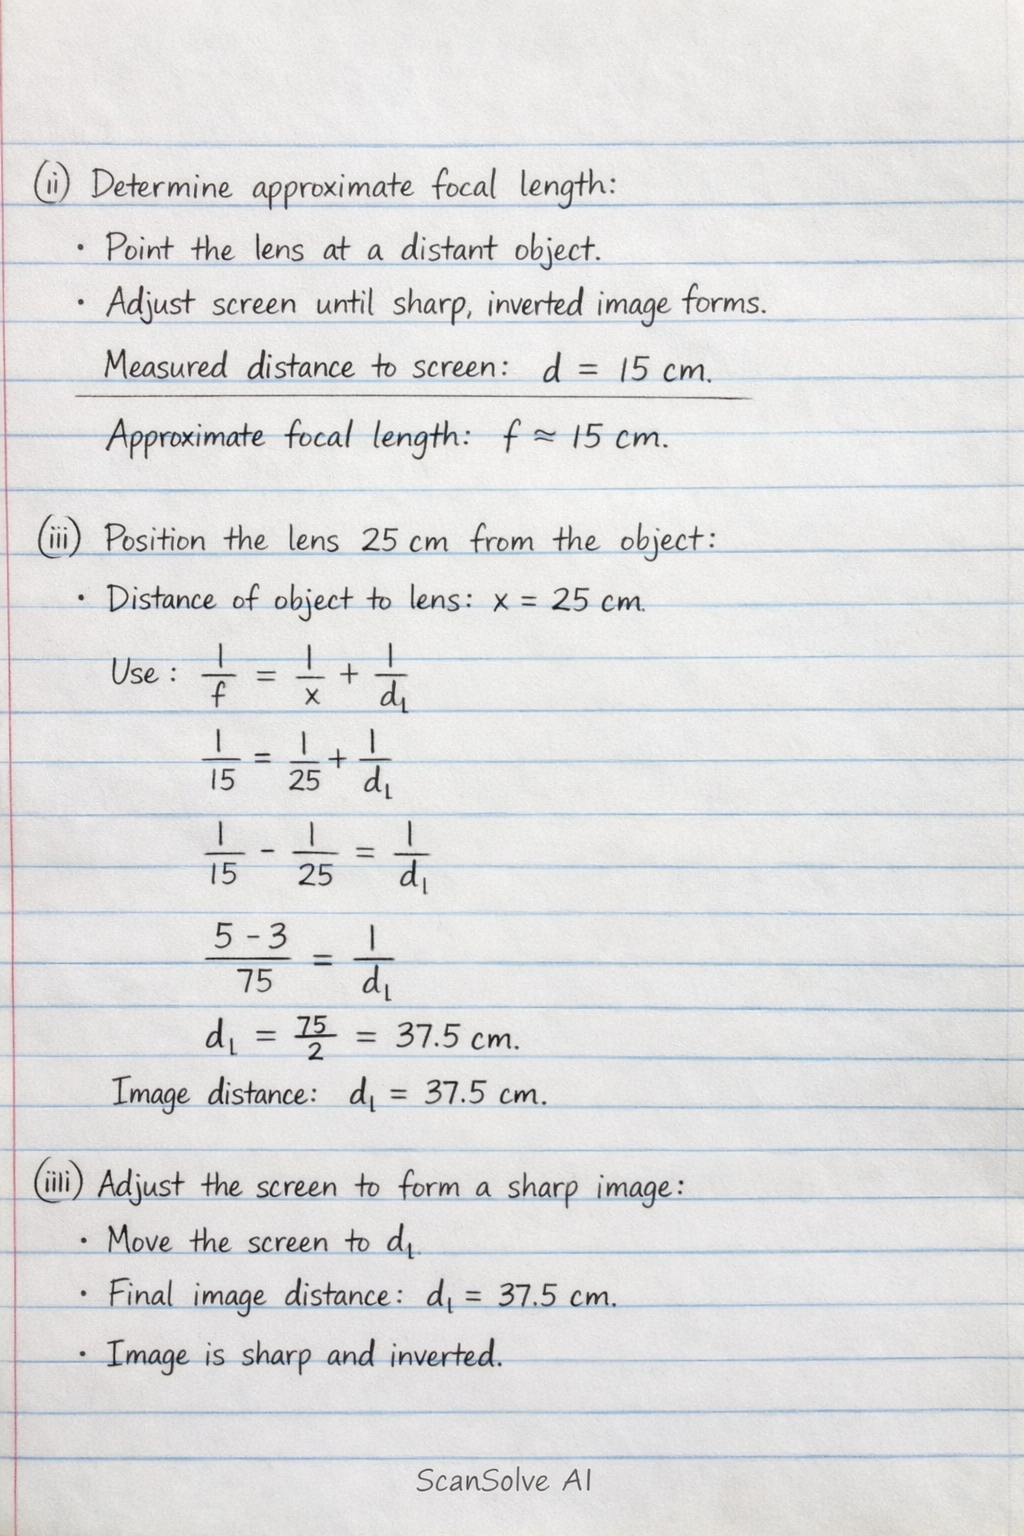 (ii) Determine approximate focal length:
• Point the lens at a distant object.
• Adjust screen until sharp, inverted image forms.
Measured distance to screen: d = 15 cm.
Approximate focal length: f ≈ 15 cm.
(iii) Position the lens 25 cm from the object:
• Distance of object to lens: x = 25 cm.
Use : 1/f = 1/x + 1/d₁
1/15 = 1/25 + 1/d₁
1/15 - 1/25 = 1/d₁
(5 - 3)/75 = 1/d₁
d₁ = 75/2 = 37.5 cm.
Image distance: d₁ = 37.5 cm.
(iiii) Adjust the screen to form a sharp image:
• Move the screen to d₁.
• Final image distance: d₁ = 37.5 cm.
• Image is sharp and inverted.
ScanSolve AI